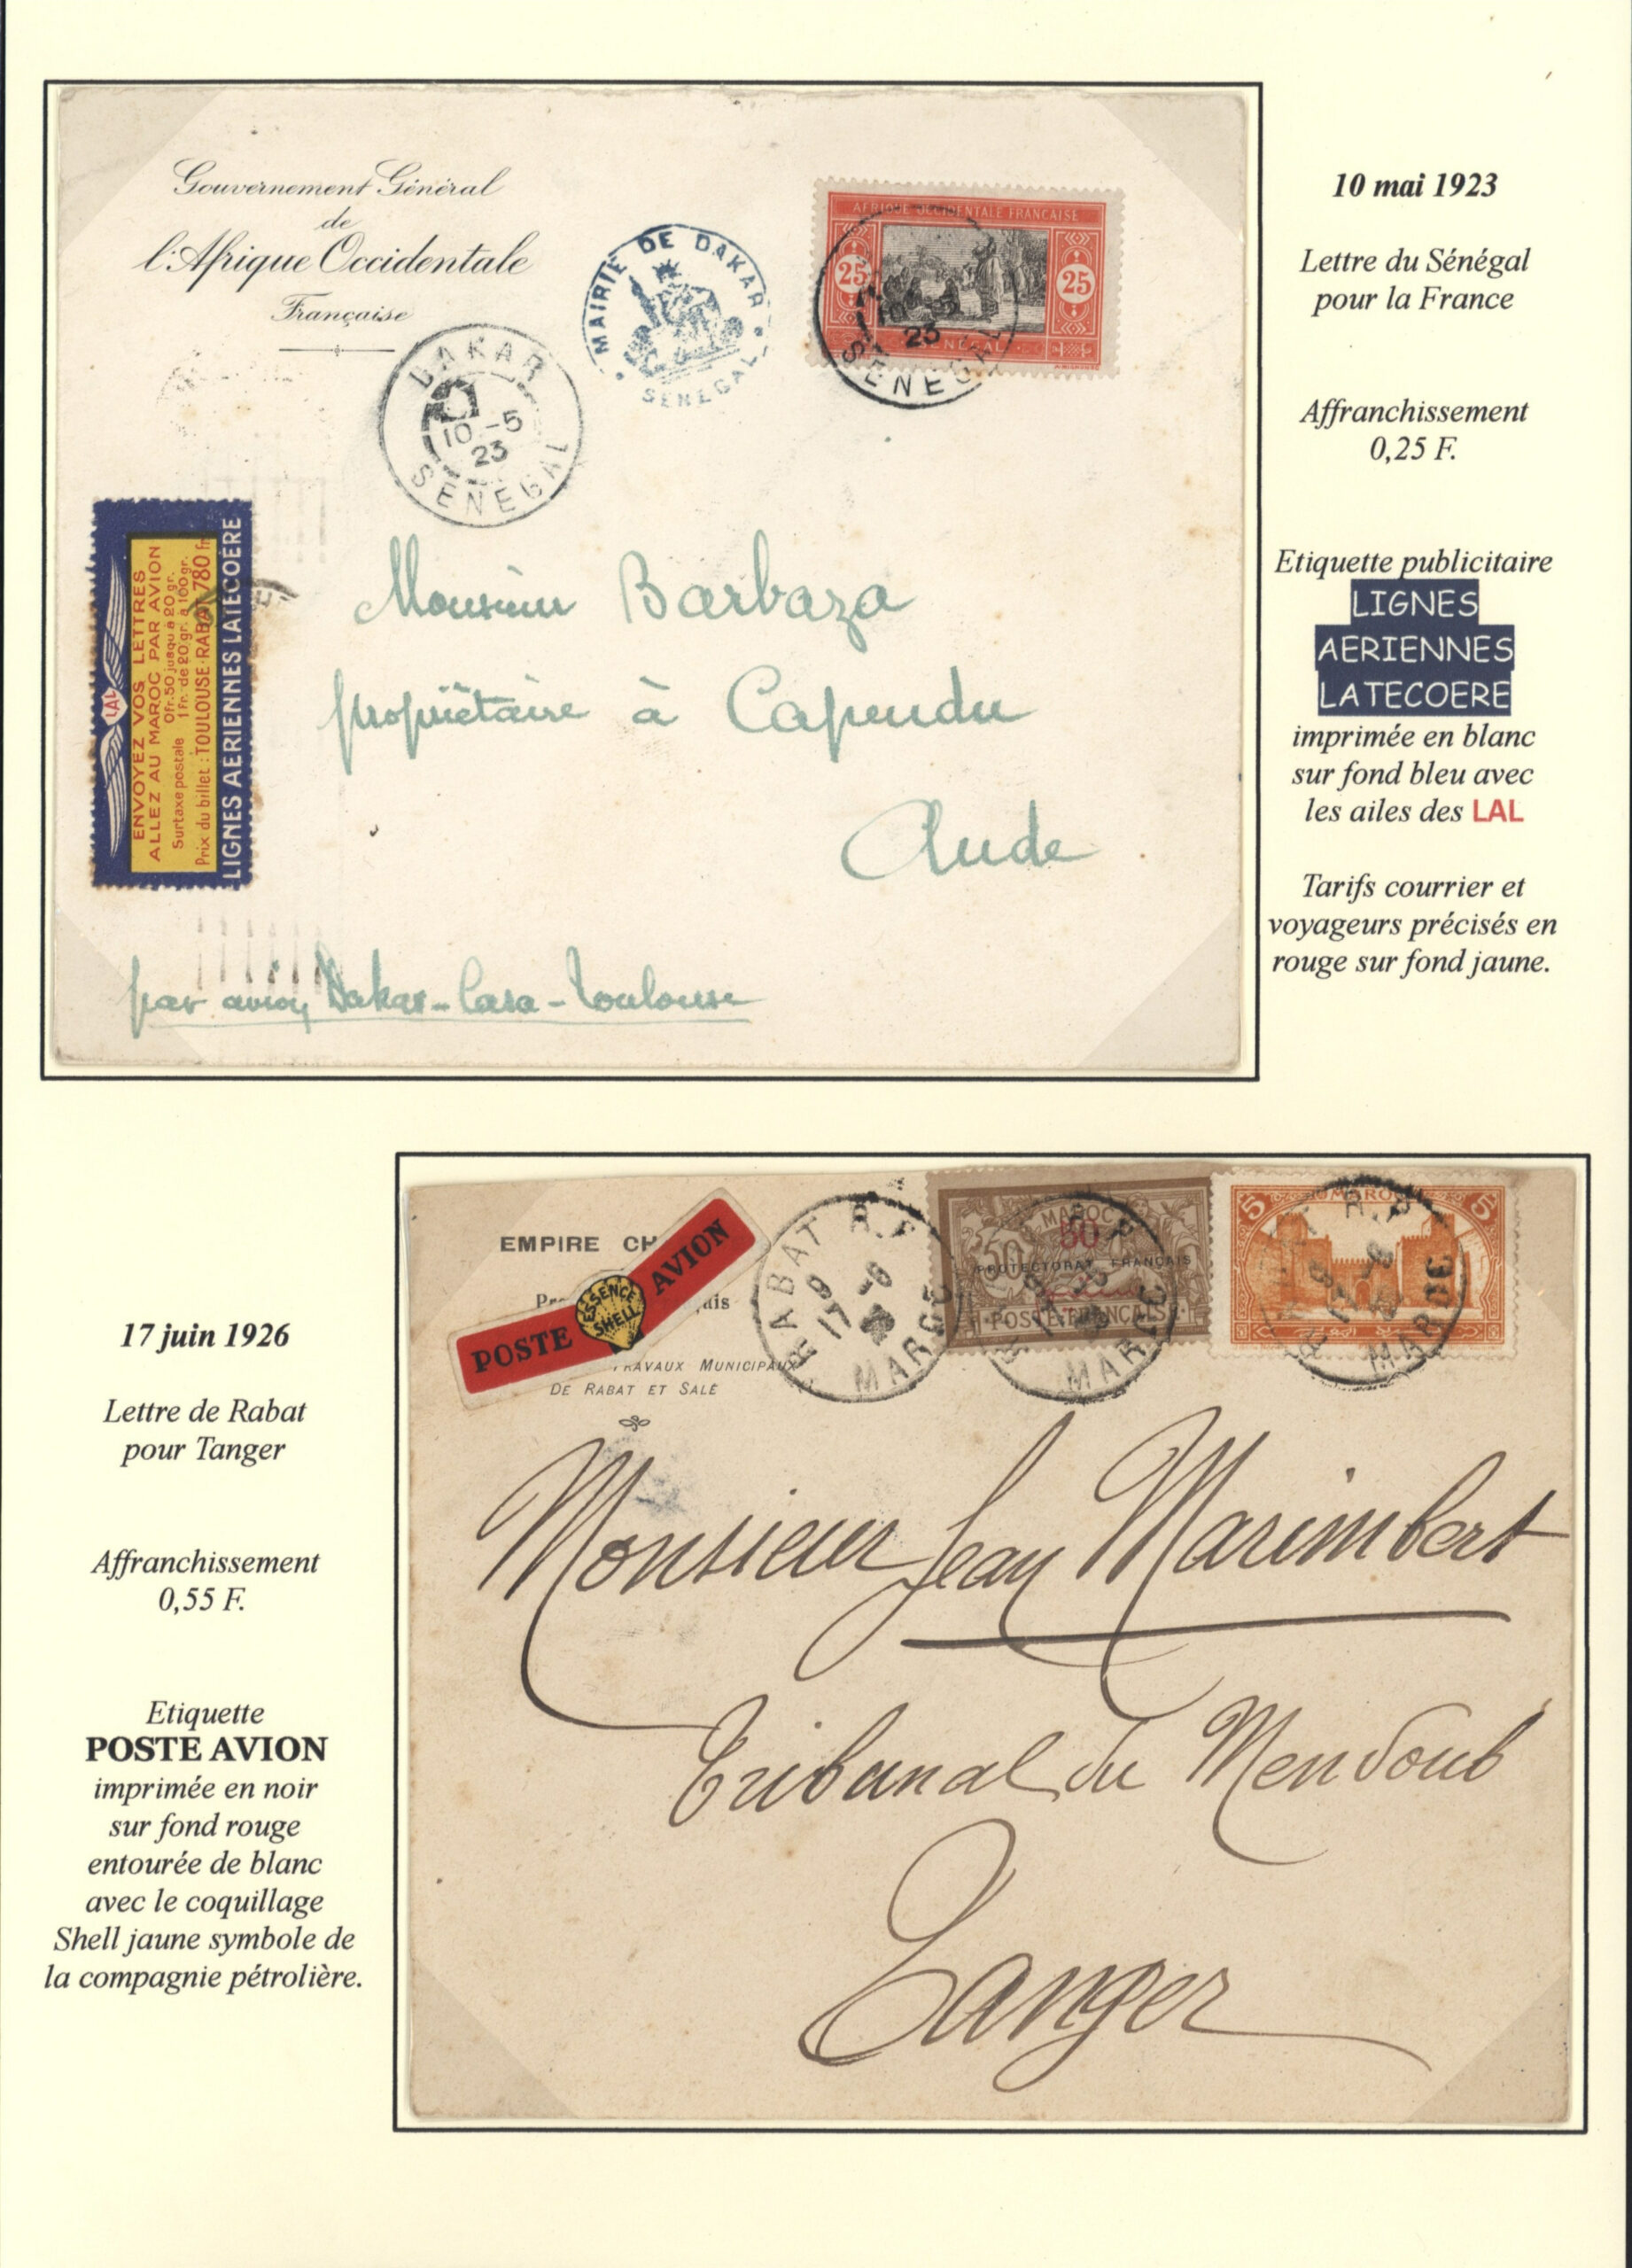 Gouvernement Général
de
l'Afrique Occidentale
Française
DAKAR
10 -5
23
SENEGAL
MAIRIE DE DAKAR
SENEGAL
AFRIQUE OCCIDENTALE FRANÇAISE
25 25
SENEGAL
10
23
SENEGAL
LAL
ENVOYEZ VOS LETTRES
ALLEZ AU MAROC PAR AVION
Surtaxe postale 0fr.50 jusqu'à 20 gr.
1 Fr. de 20 gr. à 100 gr.
Prix du billet : TOULOUSE-RABAT 780 fr.
LIGNES AERIENNES LATECOERE
Monsieur Barbaza
propriétaire à Capendu
Aude
par avion Dakar-Casa-Toulouse
10 mai 1923
Lettre du Sénégal
pour la France
Affranchissement
0,25 F.
Etiquette publicitaire
LIGNES
AERIENNES
LATECOERE
imprimée en blanc
sur fond bleu avec
les ailes des LAL
Tarifs courrier et
voyageurs précisés en
rouge sur fond jaune.
17 juin 1926
Lettre de Rabat
pour Tanger
Affranchissement
0,55 F.
Etiquette
POSTE AVION
imprimée en noir
sur fond rouge
entourée de blanc
avec le coquillage
Shell jaune symbole de
la compagnie pétrolière.
EMPIRE CH
POSTE ESSENCE SHELL AVION
TRAVAUX MUNICIPAUX
DE RABAT ET SALÉ
RABAT R.P
MAROC
MAROC
50 50
PROTECTORAT FRANÇAIS
POSTE FRANÇAISE
MAROC
5 MAROC 5
R.P
MAROC
Monsieur Jean Marimbert
Tribunal du Mendoub
Tanger